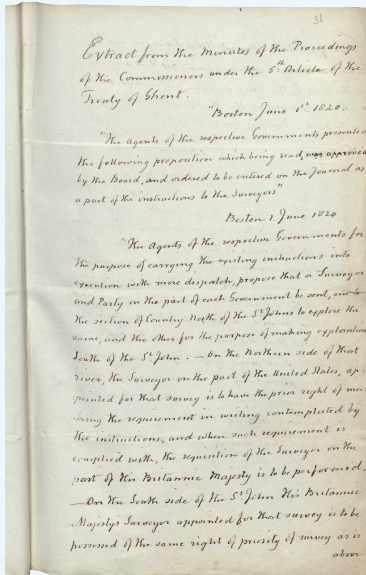 31
Extract from the Minutes of the Proceedings
of the Commissioners under the 5th Article of the
Treaty of Ghent.
"Boston June 1st 1820.
"The Agents of the respective Governments presented
the following proposition which being read, was approved
by the Board, and ordered to be entered on the Journal as
a part of the instructions to the Surveyors"
Boston 1. June 1820
"The Agents of the respective Governments for
the purpose of carrying the existing instructions into
execution with more dispatch, propose that a Surveyor
and Party on the part of each Government be sent, one to
the section of Country North of the St Johns to explore the
same, and the other for the purpose of making exploration
South of the St John. — On the Northern side of that
river, the Surveyor on the part of the United States, ap-
pointed for that survey is to have the prior right of ma-
king the requirement in writing contemplated by
the instructions, and when such requirement is
complied with, the requisition of the Surveyor on the
part of His Britannic Majesty is to be performed.
— On the South side of the St John His Britannic
Majestys Surveyor appointed for that survey is to be
possessed of the same right of priority of survey as is
above